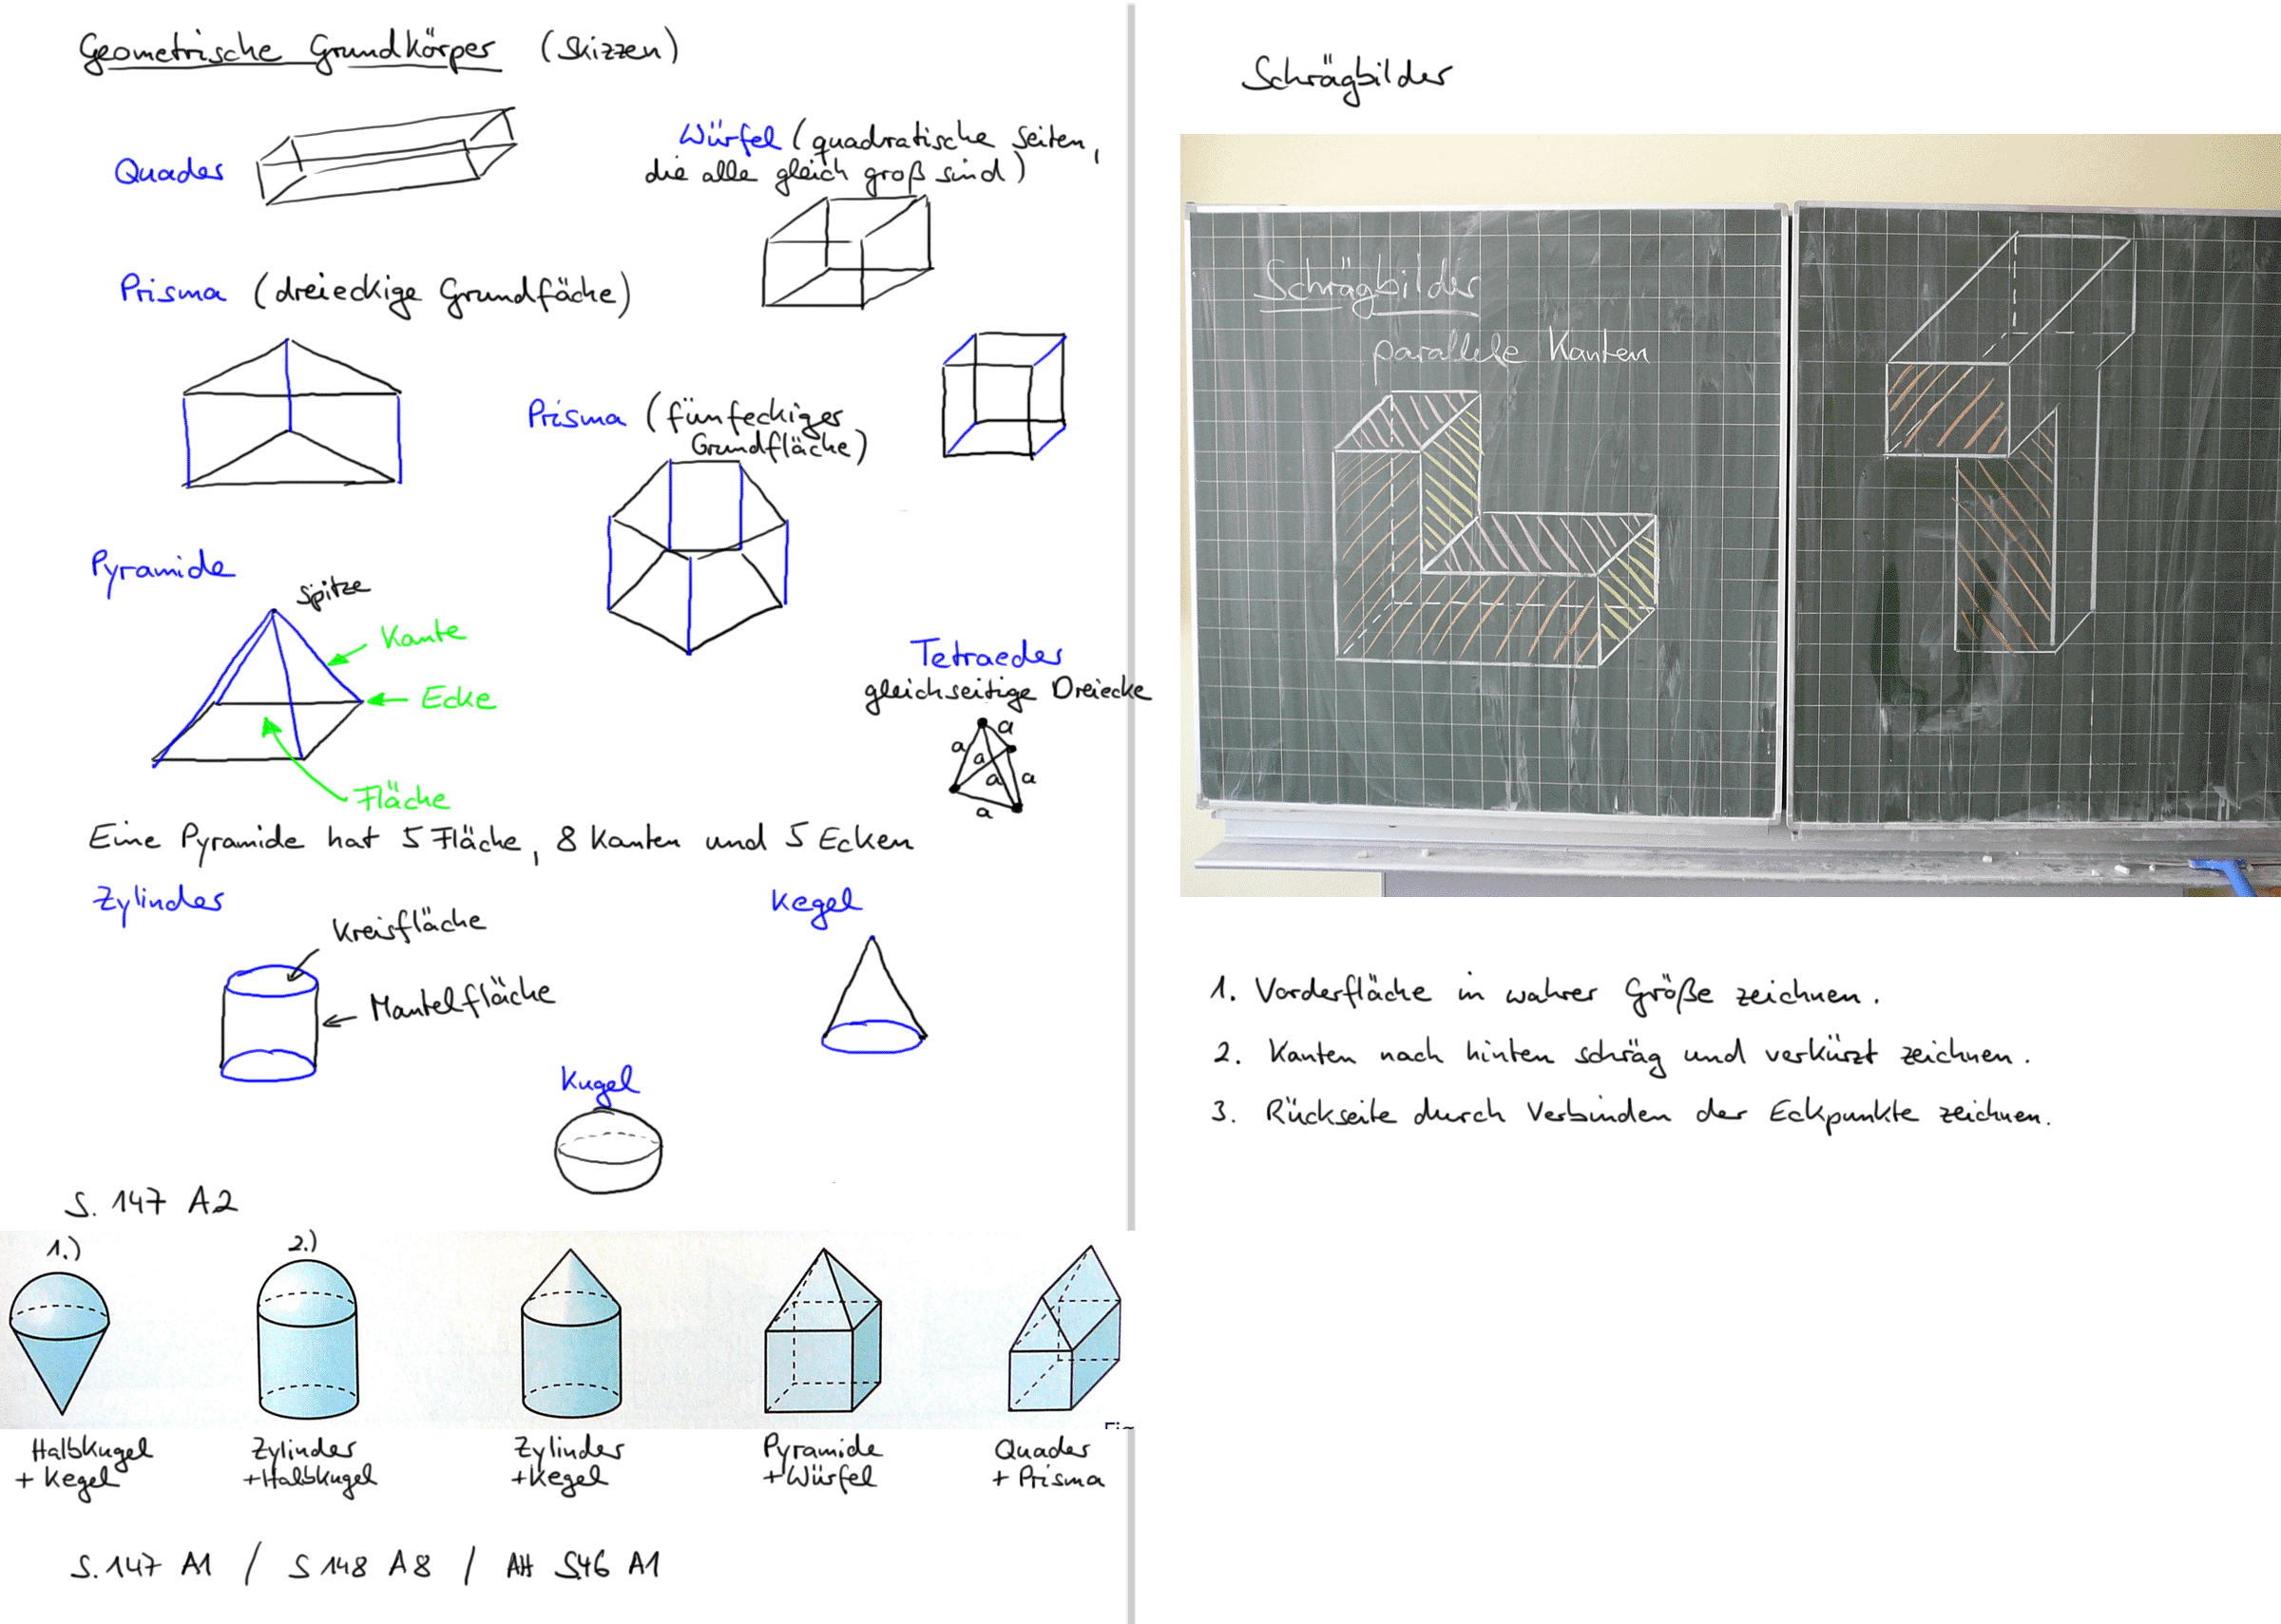 Geometrische Grundkörper (Skizzen)
Quader
Würfel (quadratische Seiten,
die alle gleich groß sind)
Prisma (dreieckige Grundfäche)
Prisma (fünfeckiger
Grundfläche)
Pyramide
Spitze
Kante
Ecke
Fläche
Tetraeder
gleichseitige Dreiecke
a
a
a
a
a
a
Eine Pyramide hat 5 Fläche, 8 Kanten und 5 Ecken
Zylinder
Kreisfläche
Mantelfläche
Kegel
Kugel
S. 147 A2
1.)
2.)
Halbkugel
+ Kegel
Zylinder
+Halbkugel
Zylinder
+Kegel
Pyramide
+Würfel
Quader
+ Prisma
S. 147 A1 / S 148 A8 / AH S46 A1
Schrägbilder
Schrägbilder
parallele Kanten
1. Vorderfläche in wahrer Größe zeichnen.
2. Kanten nach hinten schräg und verkürzt zeichnen.
3. Rückseite durch Verbinden der Eckpunkte zeichnen.